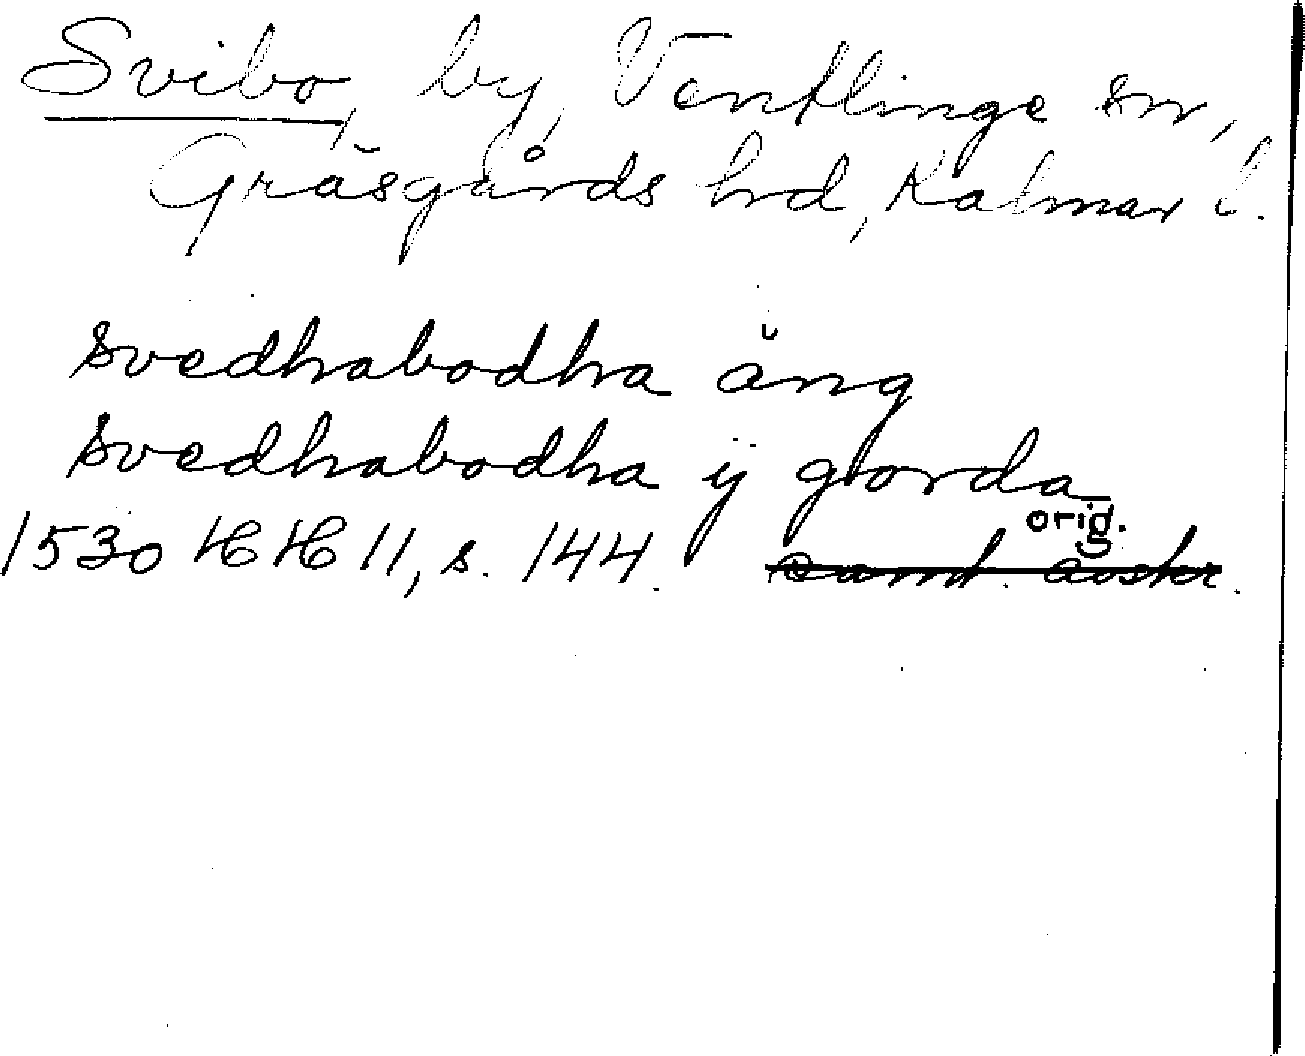 Svibo, by, Ventlinge sn,
Gräsgårds hd, Kalmar l.
svedhabodha äng
svedhabodha ÿ giorda
orig.
1530 HH 11, s. 144. samt. avskr.